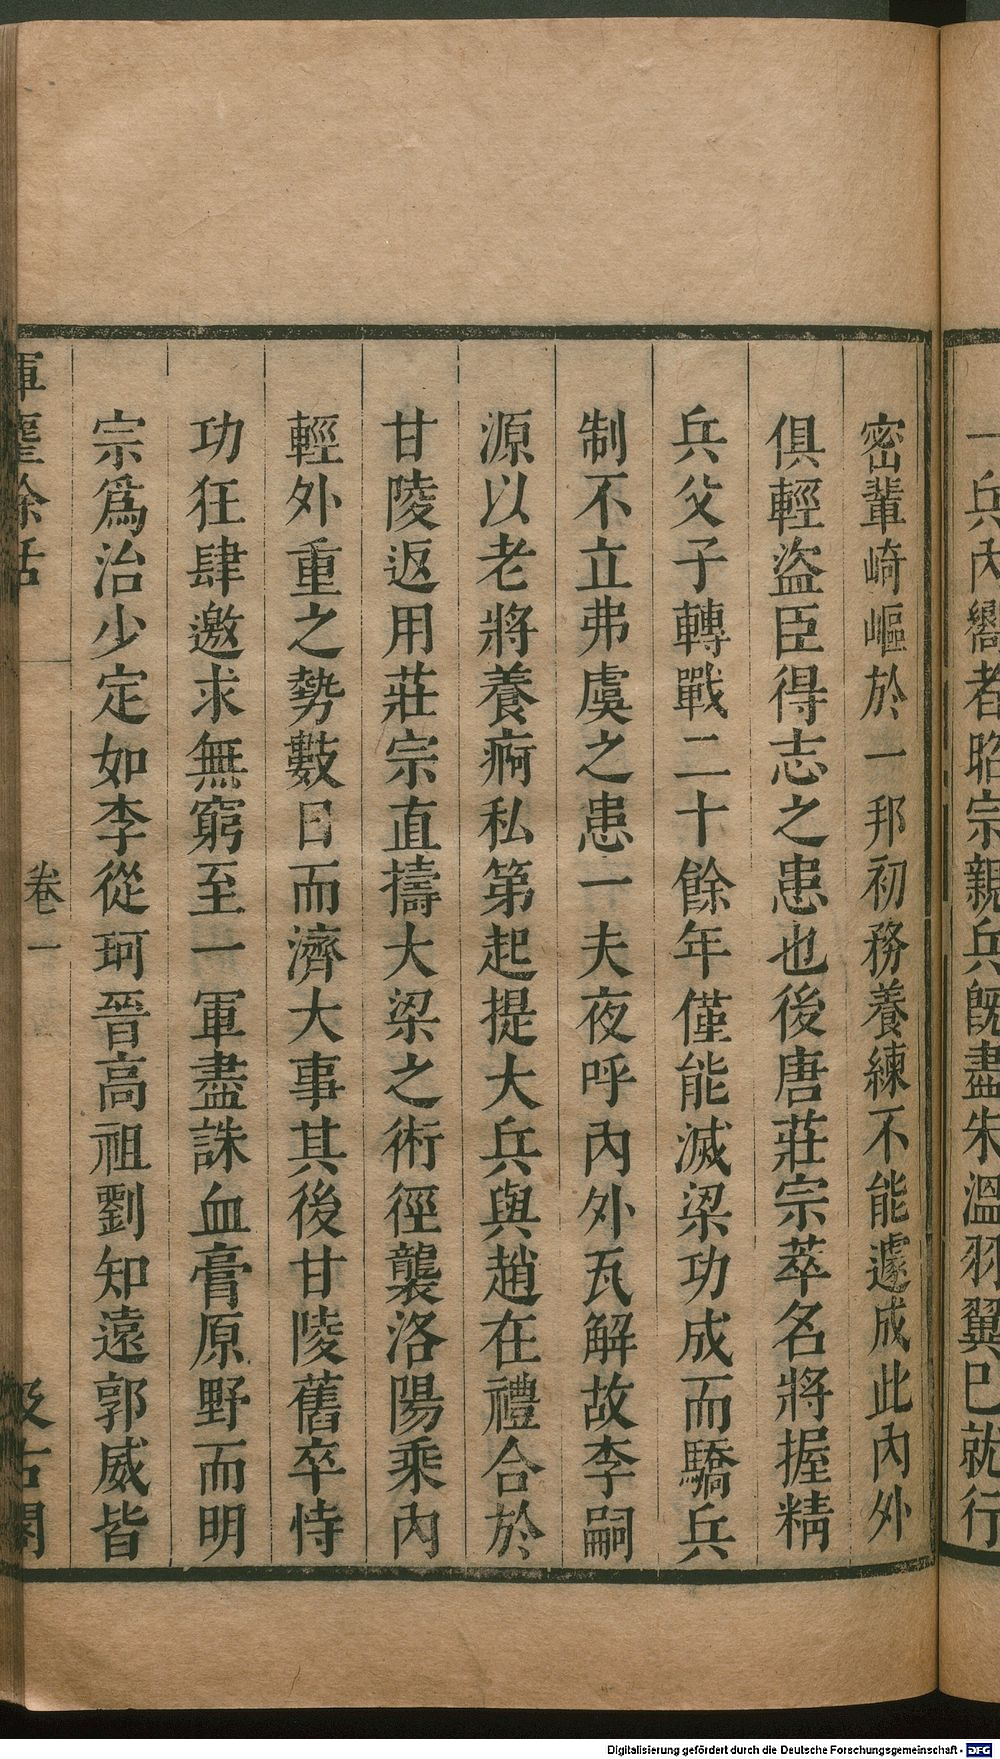 一兵內嚮者昭宗親兵旣盡朱溫羽翼已就行
密輩崎嶇於一邦初務養練不能遽成此內外
俱輕盜臣得志之患也後唐莊宗萃名將握精
兵父子轉戰二十餘年僅能滅梁功成而驕兵
制不立弗虞之患一夫夜呼內外瓦解故李嗣
源以老將養痾私第起提大兵與趙在禮合於
甘陵返用莊宗直擣大梁之術徑襲洛陽乘內
輕外重之勢數日而濟大事其後甘陵舊卒恃
功狂肆邀求無窮至一軍盡誅血膏原野而明
宗爲治少定如李從珂晉高祖劉知遠郭威皆
揮麈餘話 卷一 汲古閣
Digitalisierung gefördert durch die Deutsche Forschungsgemeinschaft - DFG